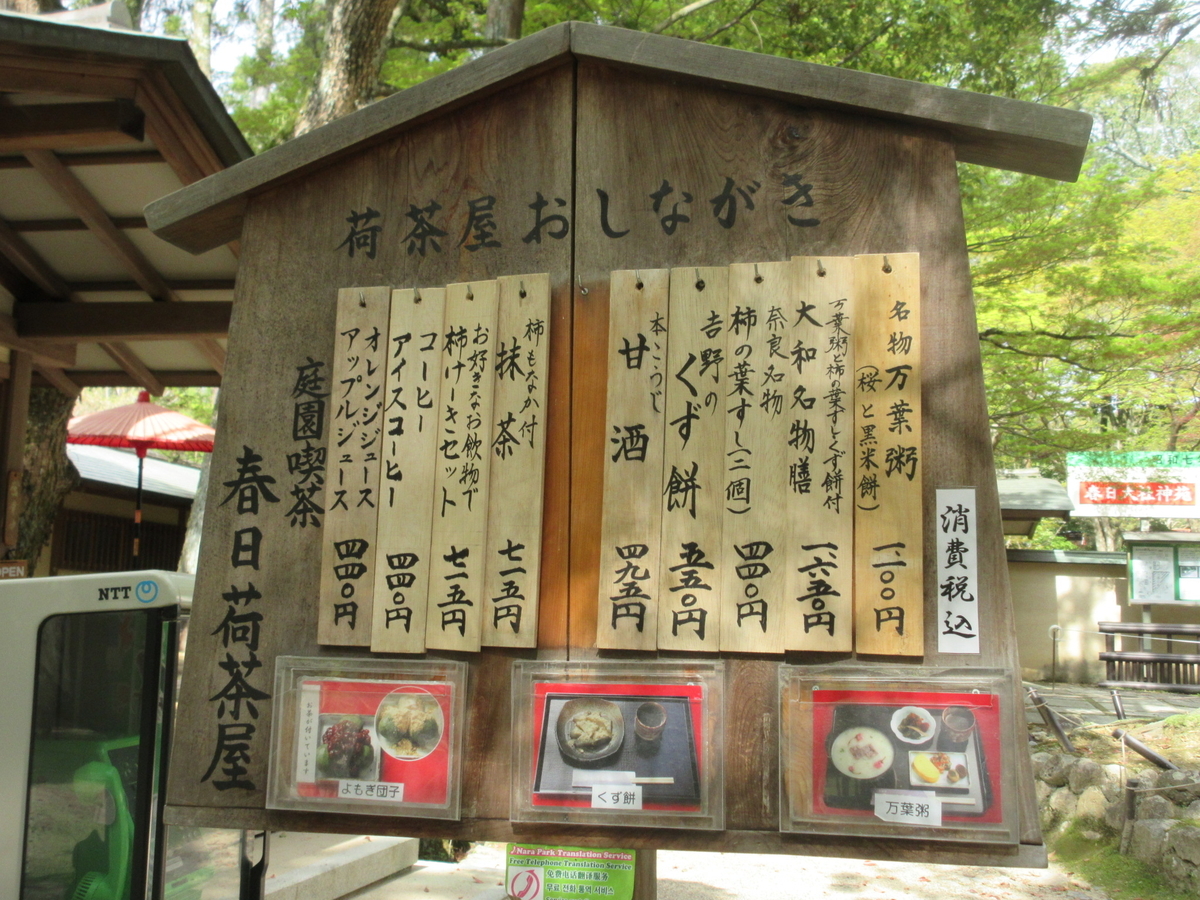 荷茶屋おしながき
名物万葉粥
(桜と黒米餅)
一一〇〇円
万葉粥と柿の葉すしとくず餅付
大和名物膳
一六五〇円
奈良名物
柿の葉すし(二個)
四四〇円
吉野の
くず餅
五五〇円
本こうじ
甘酒
四九五円
柿もなか付
抹茶
七一五円
お好きなお飲物で
柿けーきセット
七一五円
コーヒー
アイスコーヒー
四四〇円
オレンジジュース
アップルジュース
四四〇円
消費税込
庭園喫茶
春日荷茶屋
お茶が付いています
よもぎ団子
くず餅
万葉粥
NTT
OPEN
春日大社神苑
Nara Park-Translation Service
Free Telephone Translation Service
免费电话翻译服务
무료 전화 통역 서비스